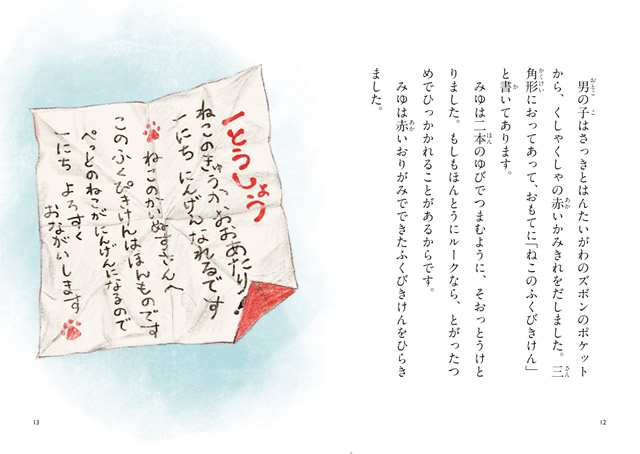 男の子はさっきとはんたいがわのズボンのポケット
から、くしゃくしゃの赤いかみきれをだしました。三
角形におってあって、おもてに「ねこのふくびきけん」
と書いてあります。
みゆは二本のゆびでつまむように、そおっとうけと
りました。もしもほんとうにルークなら、とがったつ
めでひっかかれることがあるからです。
みゆは赤いおりがみでできたふくびきけんをひらき
ました。
12
一とうしょう
ねこのきゅうか、おおあたり！
一にち にんげんなれるです
ねこのかいぬすさんへ
このふくびきけんはほんものです
ぺっとのねこがにんげんになるので
一にち よろすく
おながいします
13